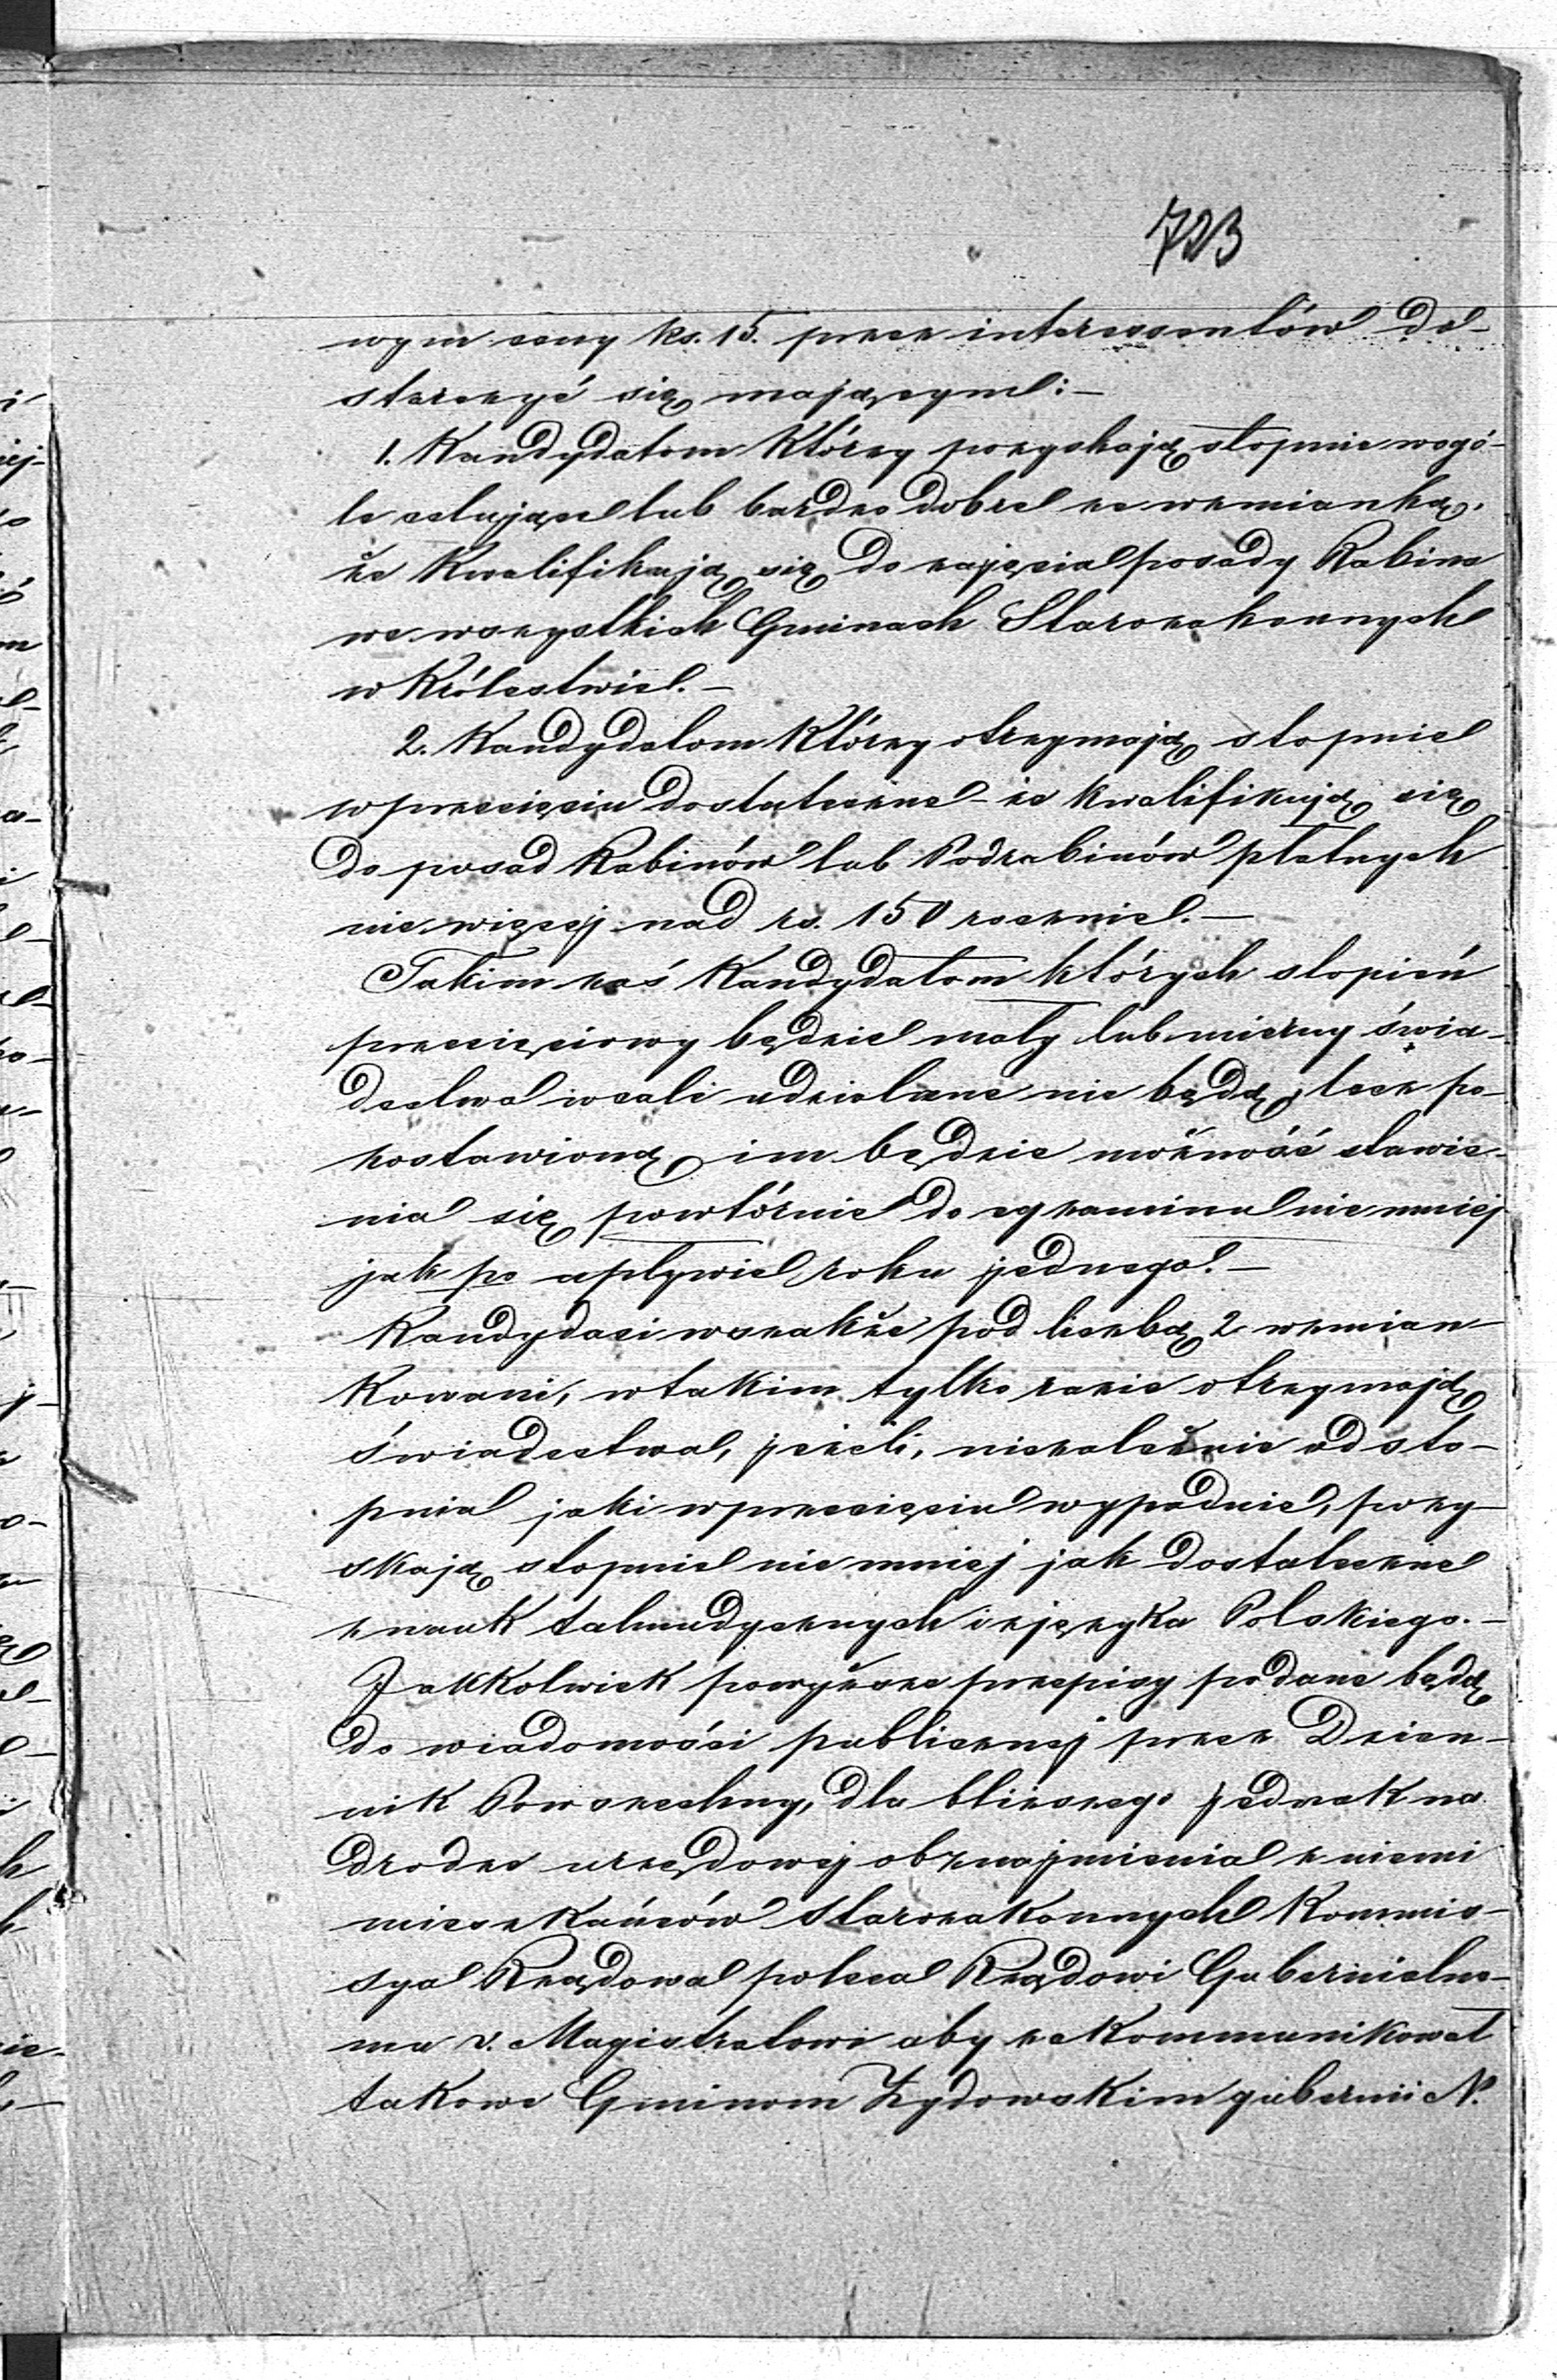 723
wym ceny ks. 15. przez interessentów do-
starczyć się mającym:-
1. Kandydatom którzy pozyskają stopnie wogó-
le celujące lub bardzo dobre ze wzmianką,
że kwalifikują się do zajęcia posady Rabina
we wszystkich Gminach Starozakonnych
w Królestwie.-
2. Kandydatom którzy otrzymają stopnie
w przecięciu dostateczne - że kwalifikują się
do posad Rabinów lub Podrabinów płatnych
nie więcej nad rs. 150 rocznie.-
Takim zaś Kandydatom których stopień
przecięciowy będzie mały lub mierny świa-
dectwa wcale udzielane nie będą, lecz po-
zostawioną im będzie możność stawie-
nia się powtórnie do egzaminu nie mniej
jak po upływie roku jednego.-
Kandydaci wszakże pod liczbą 2 wzmian-
kowani, w takim tylko razie otrzymają
świadectwa, jeżeli, niezależnie od sto-
pnia jaki w przecięciu wypadnie, pozy-
skają stopnie nie mniej jak dostateczne
z nauk talmudycznych i z języka Polskiego.-
Jakkolwiek powyższe przepisy podane będą
do wiadomości publicznej przez Dzien-
nik Powszechny, dla bliższego jednak na
drodze urzędowej obznajmienia z niemi
mieszkańców Starozakonnych Kommis-
sya Rządowa poleca Rządowi Gubernialne-
mu v. Magistratowi aby zakommunikował
takowe Gminom Żydowskim gubernii N.